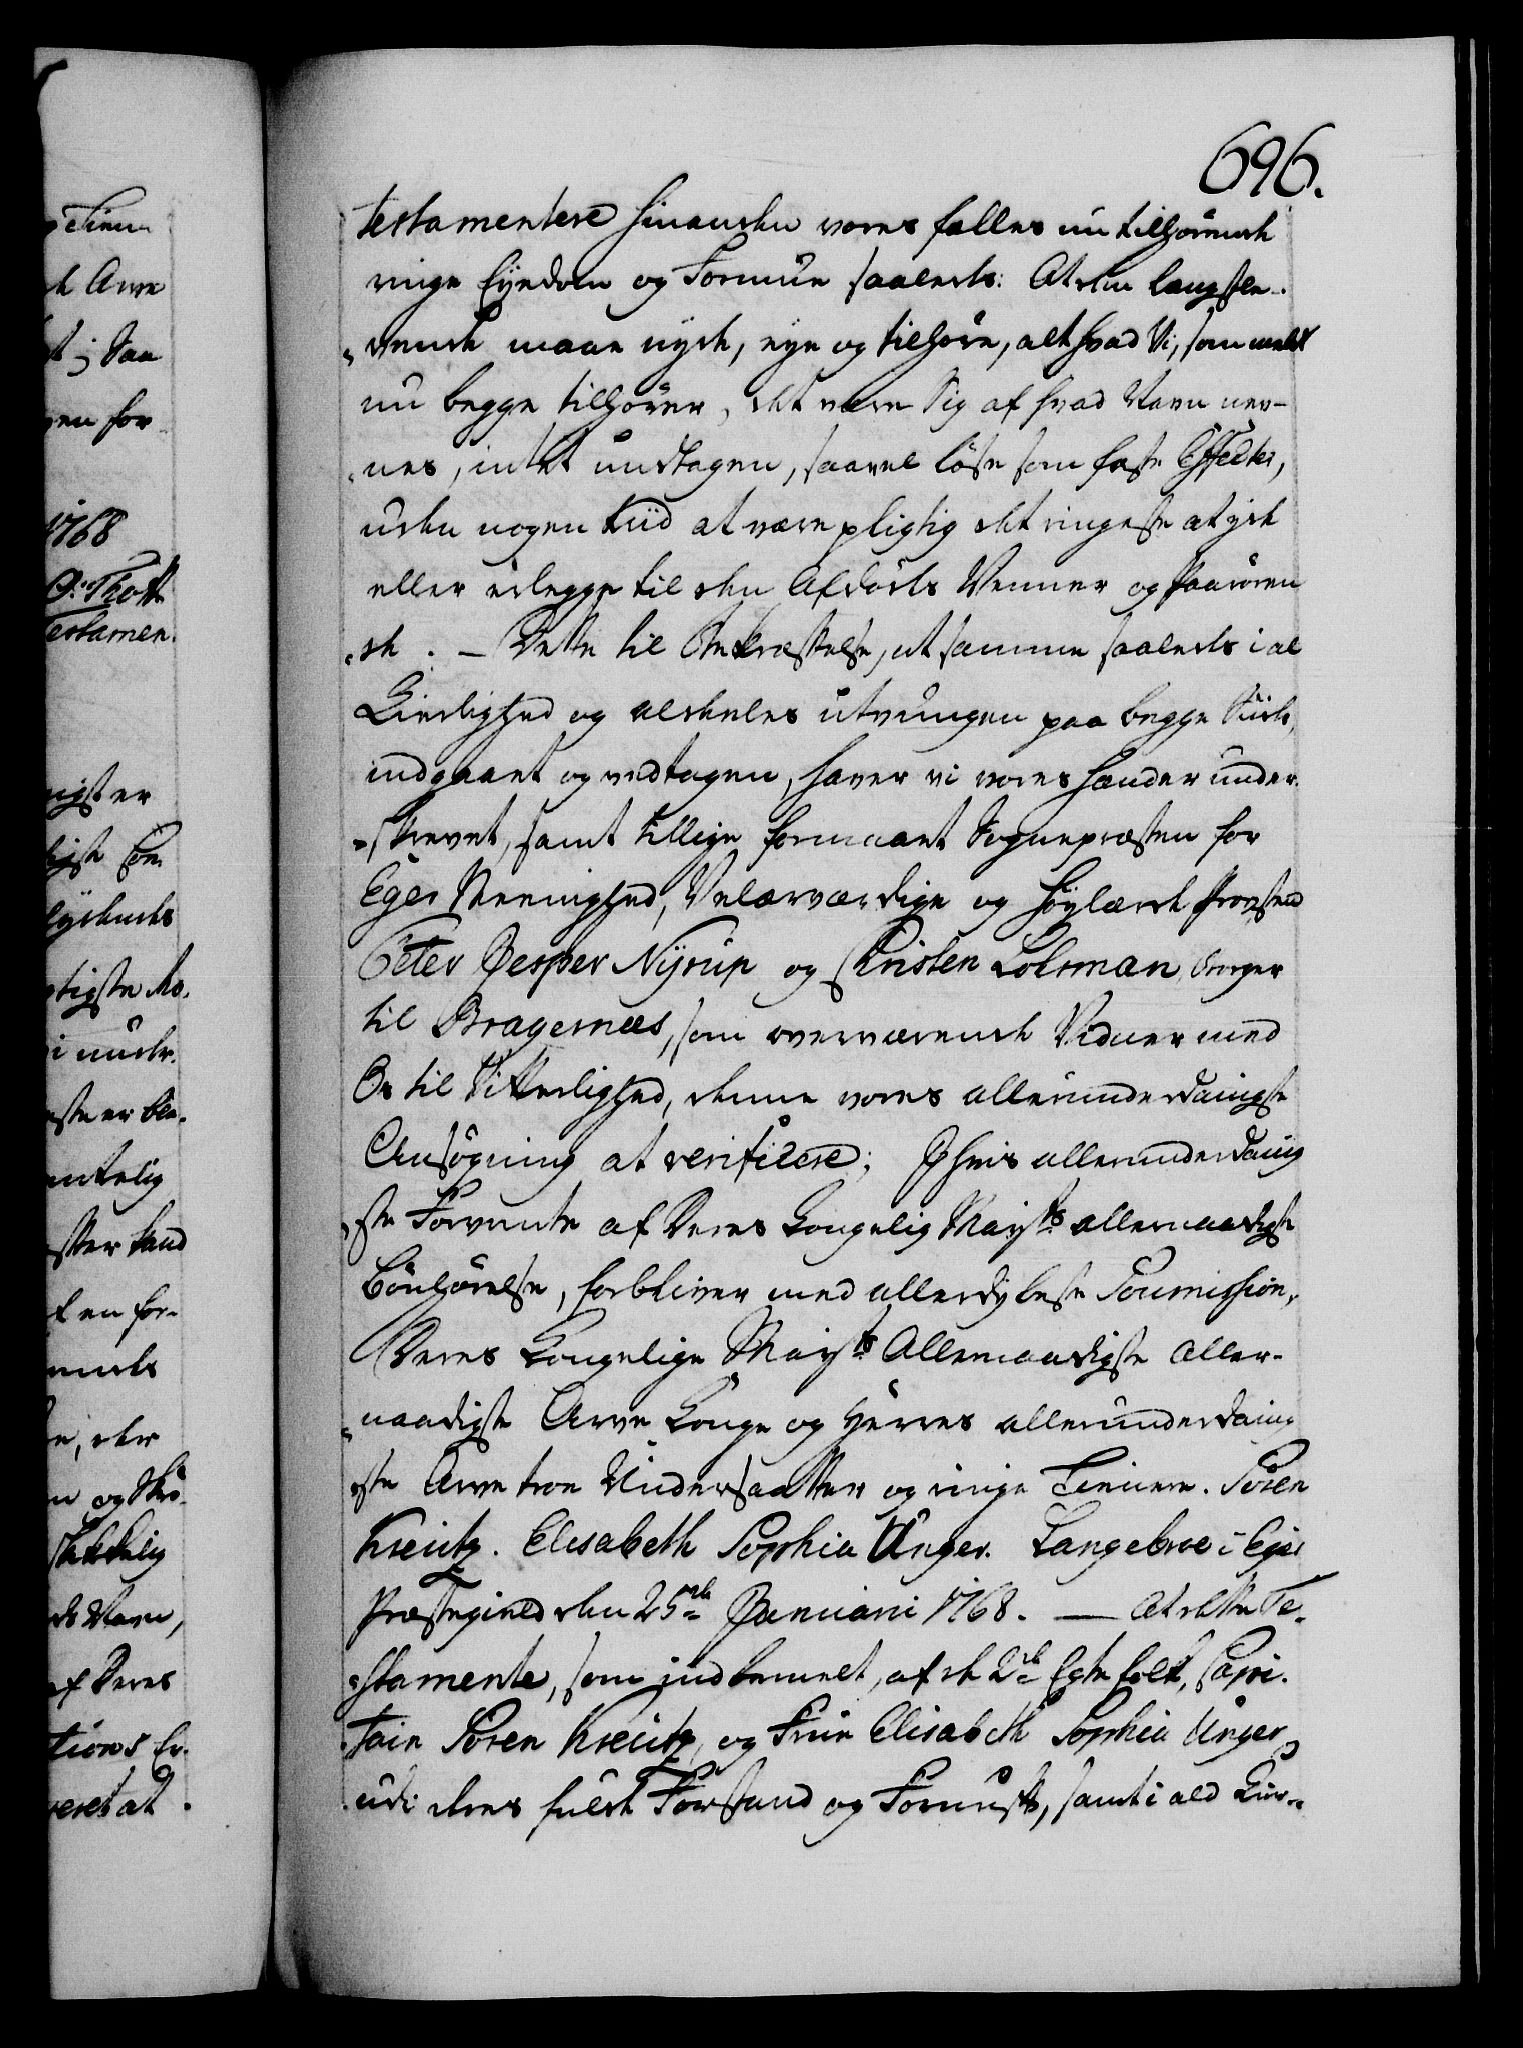 696.
testamentere hinanden vores fælles nu tilhørende
ringe Eyendom og Formue saaledes: At den længstle-
vende maae nyde, eye og tilhøre, alt hvad Vi, som meldt
nu begge tilhører, det være Sig af hvad Navn nev-
nes, intet undtagen, saavel løse som faste Effecter,
uden nogen tiid at være pligtig det ringeste at yde
eller erlegge til den Afdødes Venner og Paarøren
de. – Dette til Bekræftelse, at samme saaledes i al
Kierlighed og aldeles utvungen paa begge Siider,
indgaaet og vedtagen, haver vi vores Hænder under-
skrevet, samt tillige formaaet Sognepræsten for
Eger Meenighed, Velærværdige og Høylærde Provst
Peter Jesper Nÿrup og Christen Lolsman, Borger
til Bragernæs, som overværende Vidner med
Os til Vitterlighed, denne vores allerunderdanigste
Ansøgning at verificere; I hvis allerunderdanig
ste Forvente af Deres Kongelig Mayts allernaadigste
Bønhørelse, forbliver med allerdybeste Soumission,
Deres Kongelige Mayts Allernaadigste Aller-
naadigste Arve Konge og Herres allerunderdanig
ste Arve troe Undersaatter og ringe Tienere. Søren
Kreutz. Elisabeth Sophia Unger. Langebroe i Eger
Præstegield den 25de Januarii 1768. — At dette Te-
stamente, som indbemelt, af de 2de Egte Folk, Capi-
tain Søren Kreutz, og Frue Elisabeth Sophia Unger,
udi deres fulde Forstand og Fornuft, samt i ald Kier-